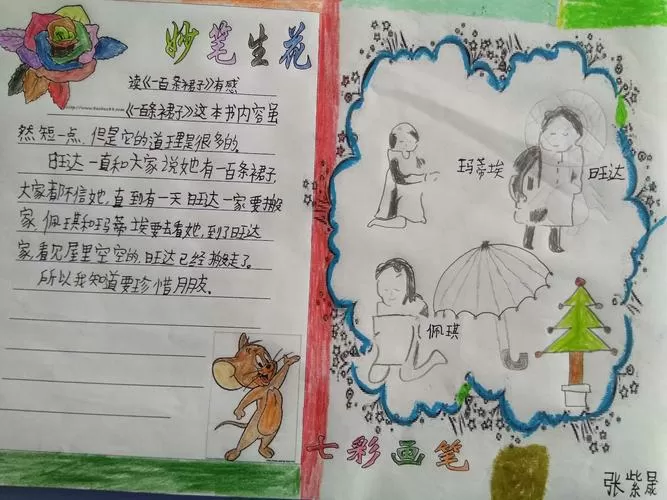 妙笔生花
读《一百条裙子》有感
《一百条裙子》这本书内容虽
然短一点,但是它的道理是很多的。
旺达一直和大家说她有一百条裙子,
大家都不信她,直到有一天旺达一家要搬
家,佩琪和玛蒂埃要去看她,到了旺达
家,看见屋里空空的,旺达已经搬走了。
所以我知道要珍惜朋友。
玛蒂埃
旺达
佩琪
七彩画笔
张紫晟